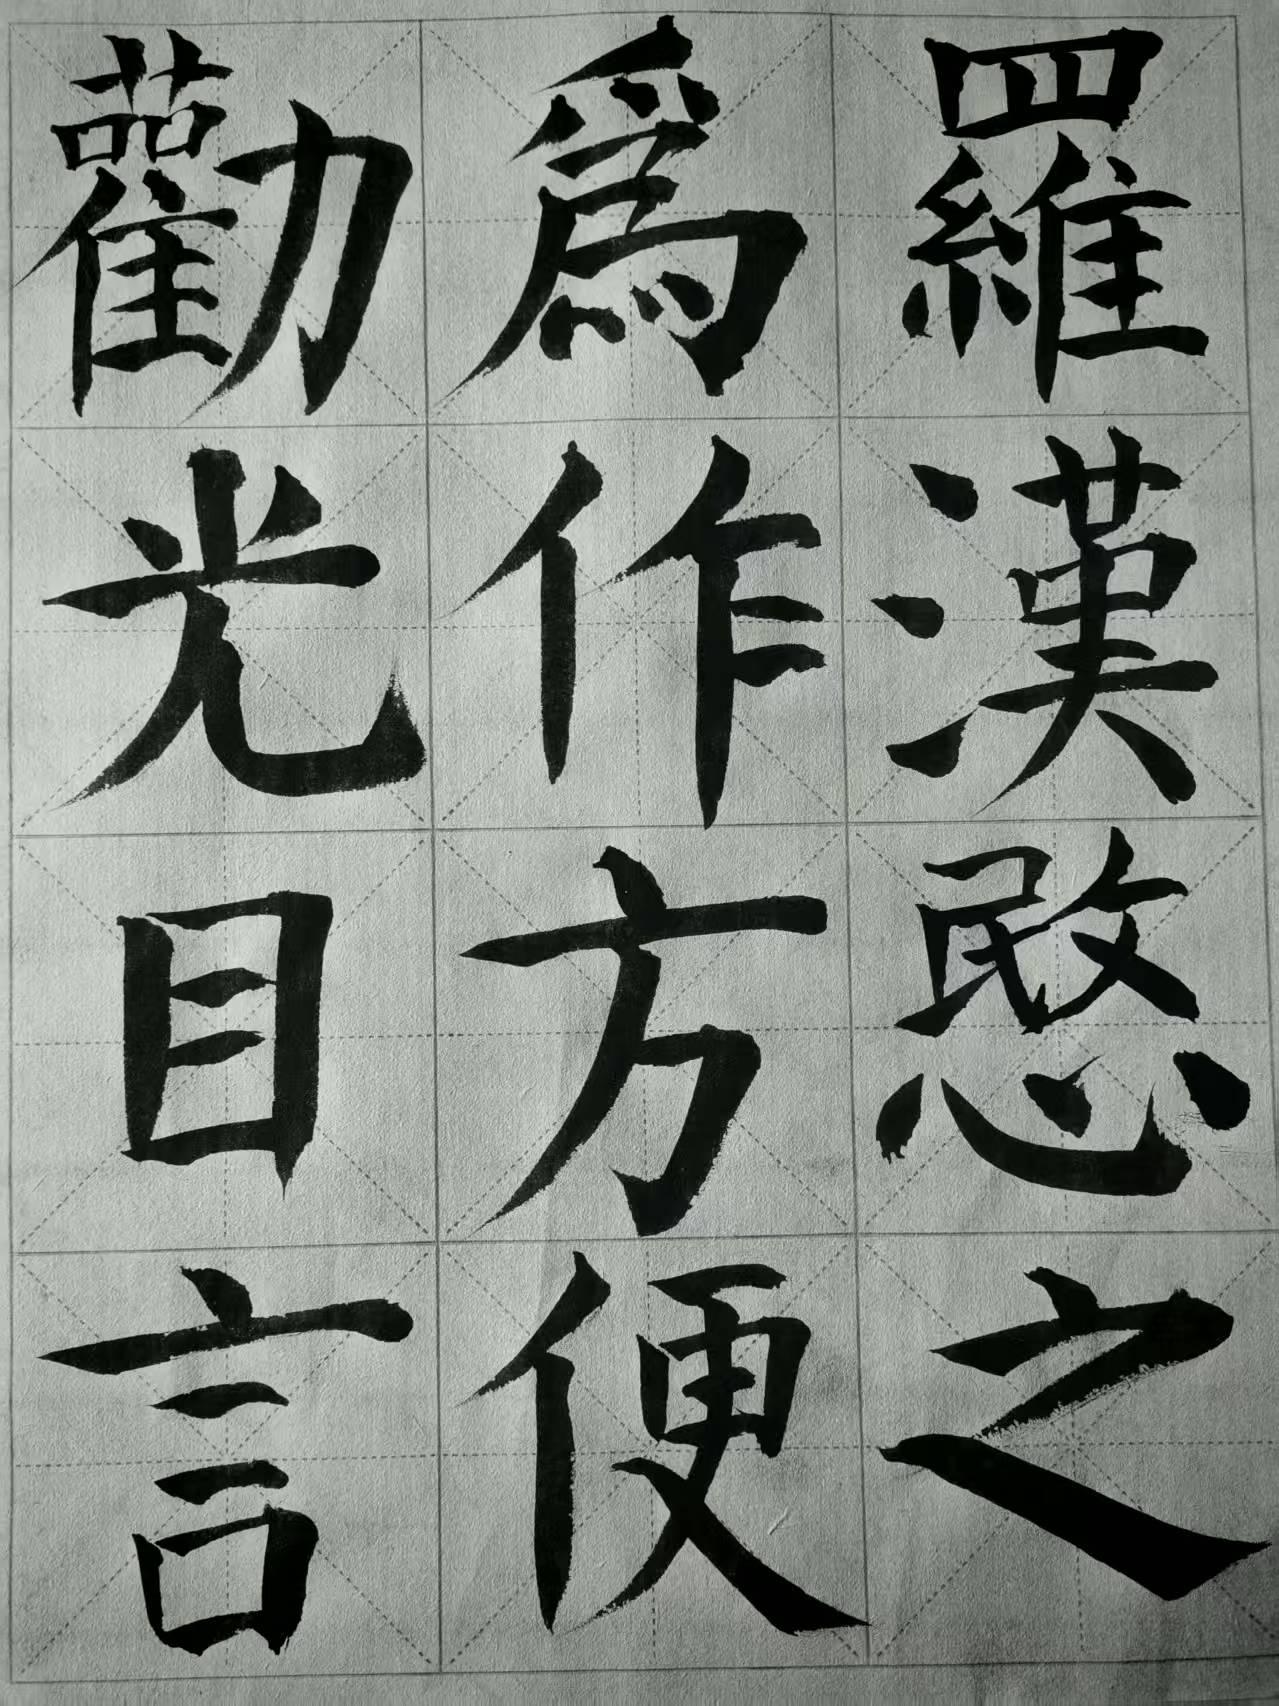 羅漢愍之
為作方便
勸光目言